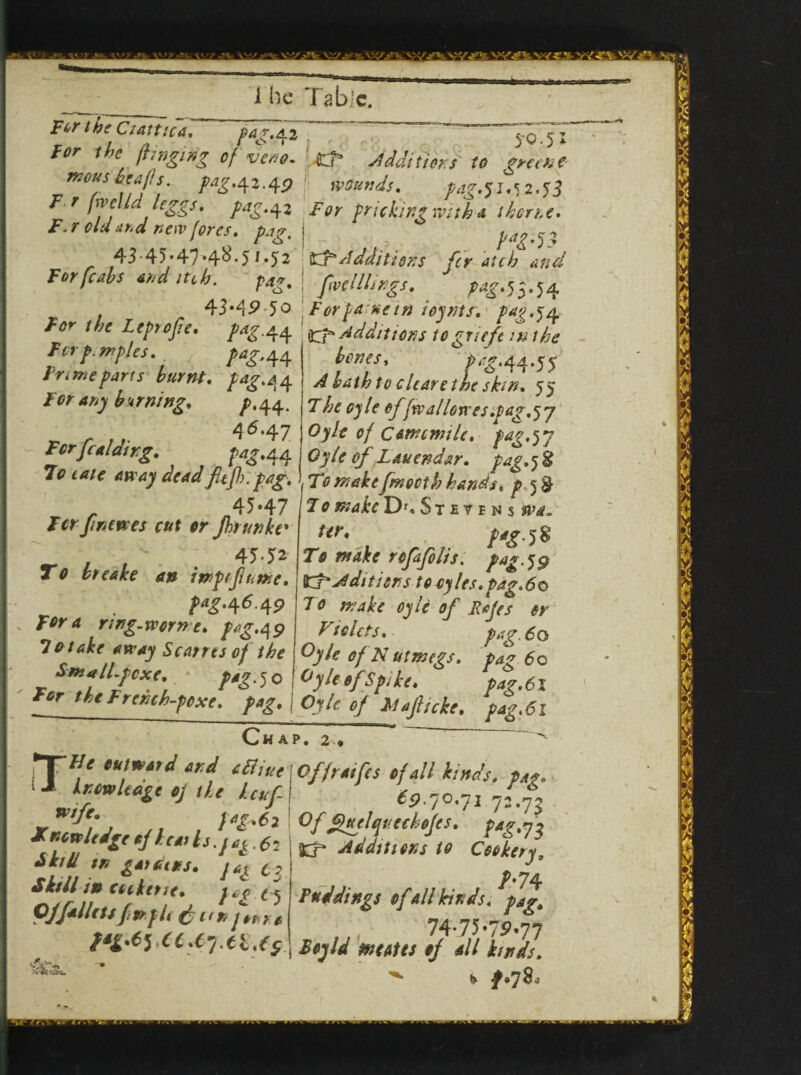 The Table.
For the Ciattica. pag.42
For the ſtinging of veno-
mous beaſts. pag.42.49
F r ſwelld leggs. pag.42
F.r old and new ſores. pag.
43.45.47.48.51.52
For ſcabs and itch. pag.
43.49.50
For the Leproſie. pag.44
For p.mples. pag.44
Prime parts burnt. pag.44
For any burning. p.44.
46.47
For ſcalding. pag.44
To tate away dead fleſh. pag.
45.47
For ſinewes cut or ſhrunke.
45.52
To breake an impoſtume.
pag.46.49
For a ring-worme. pag.49
To take away Scarres of the
Small-poxe. pag.50
For the French-poxe. pag.
50.51
☞ Additions to greene
wounds. pag.51.52.53
For pricking with a thorne.
pag.53
☞ Additions for atch and
ſwelllings. pag.53.54
For paine in ioynts. pag.54
☞ Additions to griefe in the
bones, pag.44.55
A bath to cleare the skin. 55
The oyle of ſwallowes.pag.57
Oyle of Camomile. pag.57
Oyle of Lauendar. pag.58
To make ſmooth hands. p.58
To make Dr. Stevens wa-
ter. pag.58
To make roſaſolis. pag.59
☞ Aditions to oyles.pag.60
To make oyle of Roſes or
Violets. pag.60
Oyle of Nutmegs. pag 60
Oyle of Spike. pag.61
Oyle of Maſticke. pag.61
Chap. 2.
THe outward and actiue
knowledge of the houſ-
wife. pag.62
Knowledge of hearbs.pag.62
Skill in gardens. pag 63
Skill in cookerie. pag 65
Of ſallets ſimple & compound
pag.65.66.67.68.69
Of fraiſes of all kinds. pag.
69.70.71 72.73
Of Quelquechoſes. pag.73
☞ Additions to Cookery,
p.74
Puddings of all kinds. pag.
74.75.79.77
Boyld meates of all kinds.
p.78.